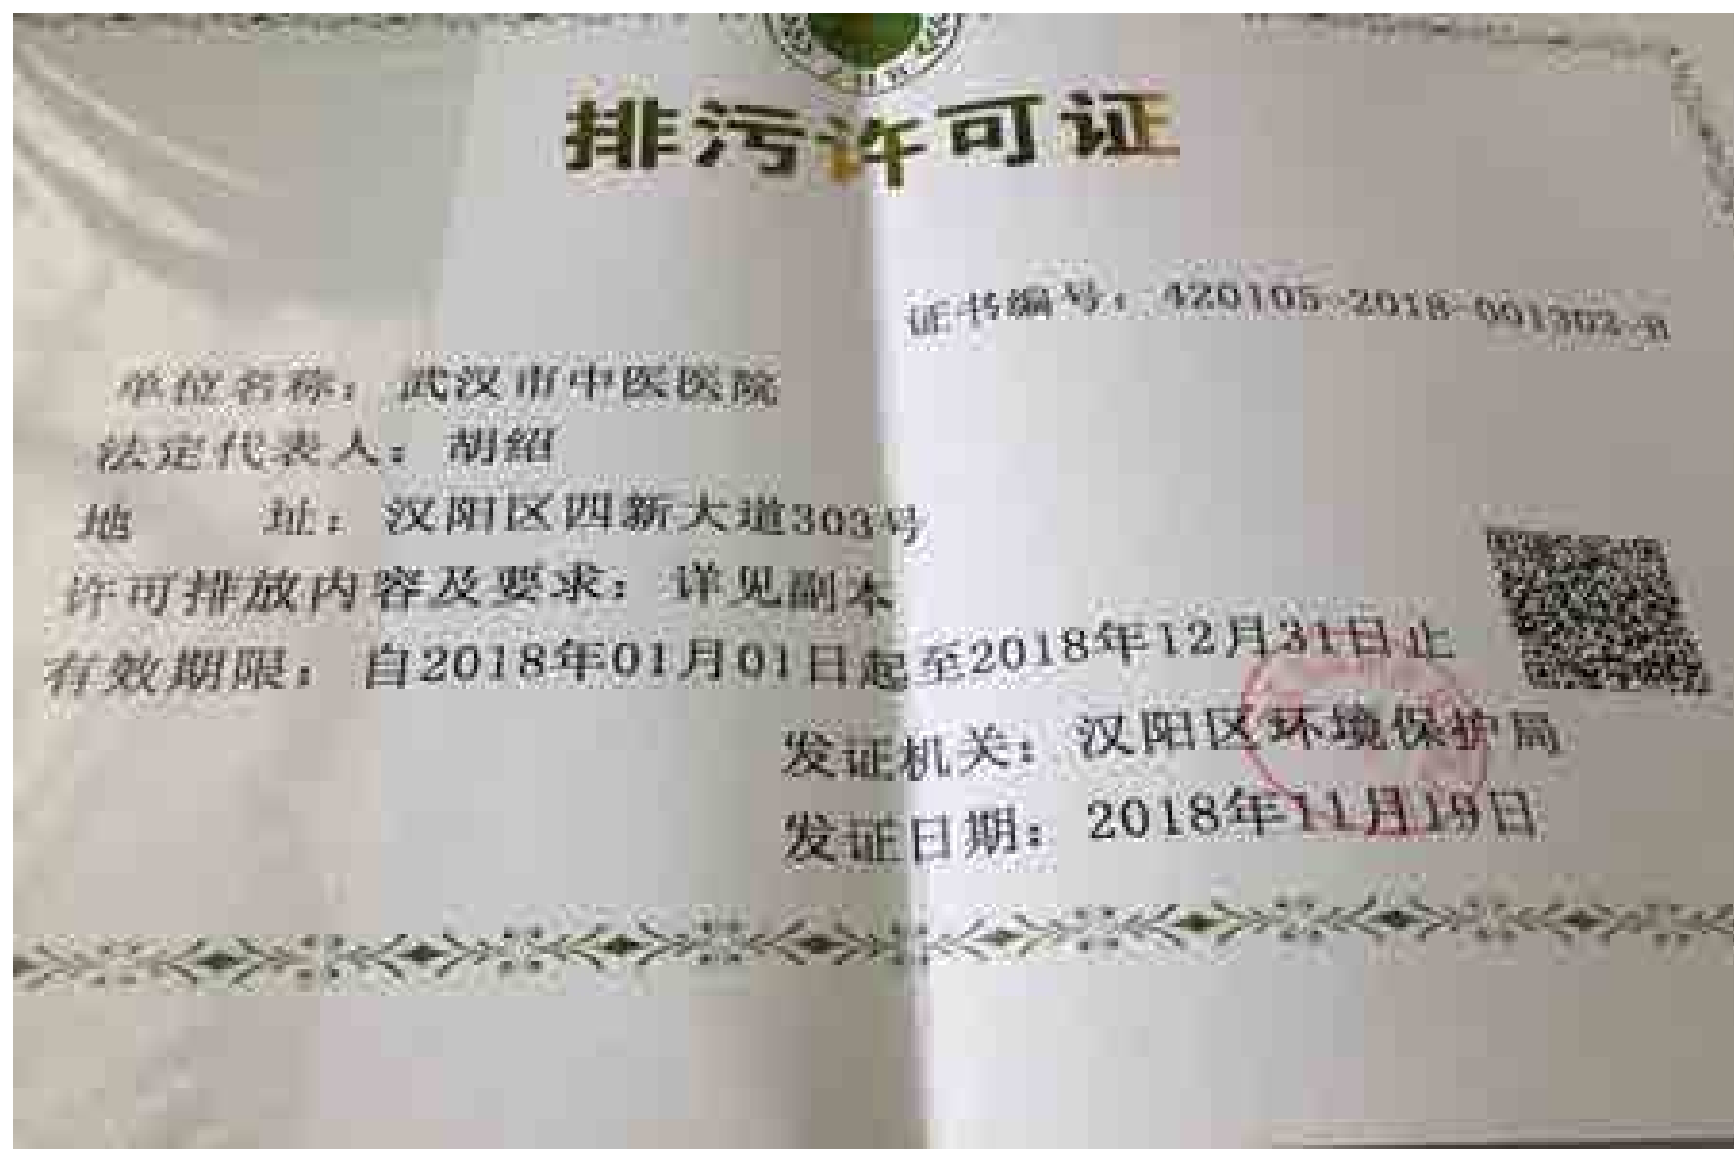 排污许可证
证书编号：420105-2018-001302-B
单位名称：武汉市中医医院
法定代表人：胡绍
地 址：汉阳区四新大道303号
许可排放内容及要求：详见副本
有效期限：自2018年01月01日起至2018年12月31日止
发证机关：汉阳区环境保护局
发证日期：2018年11月19日